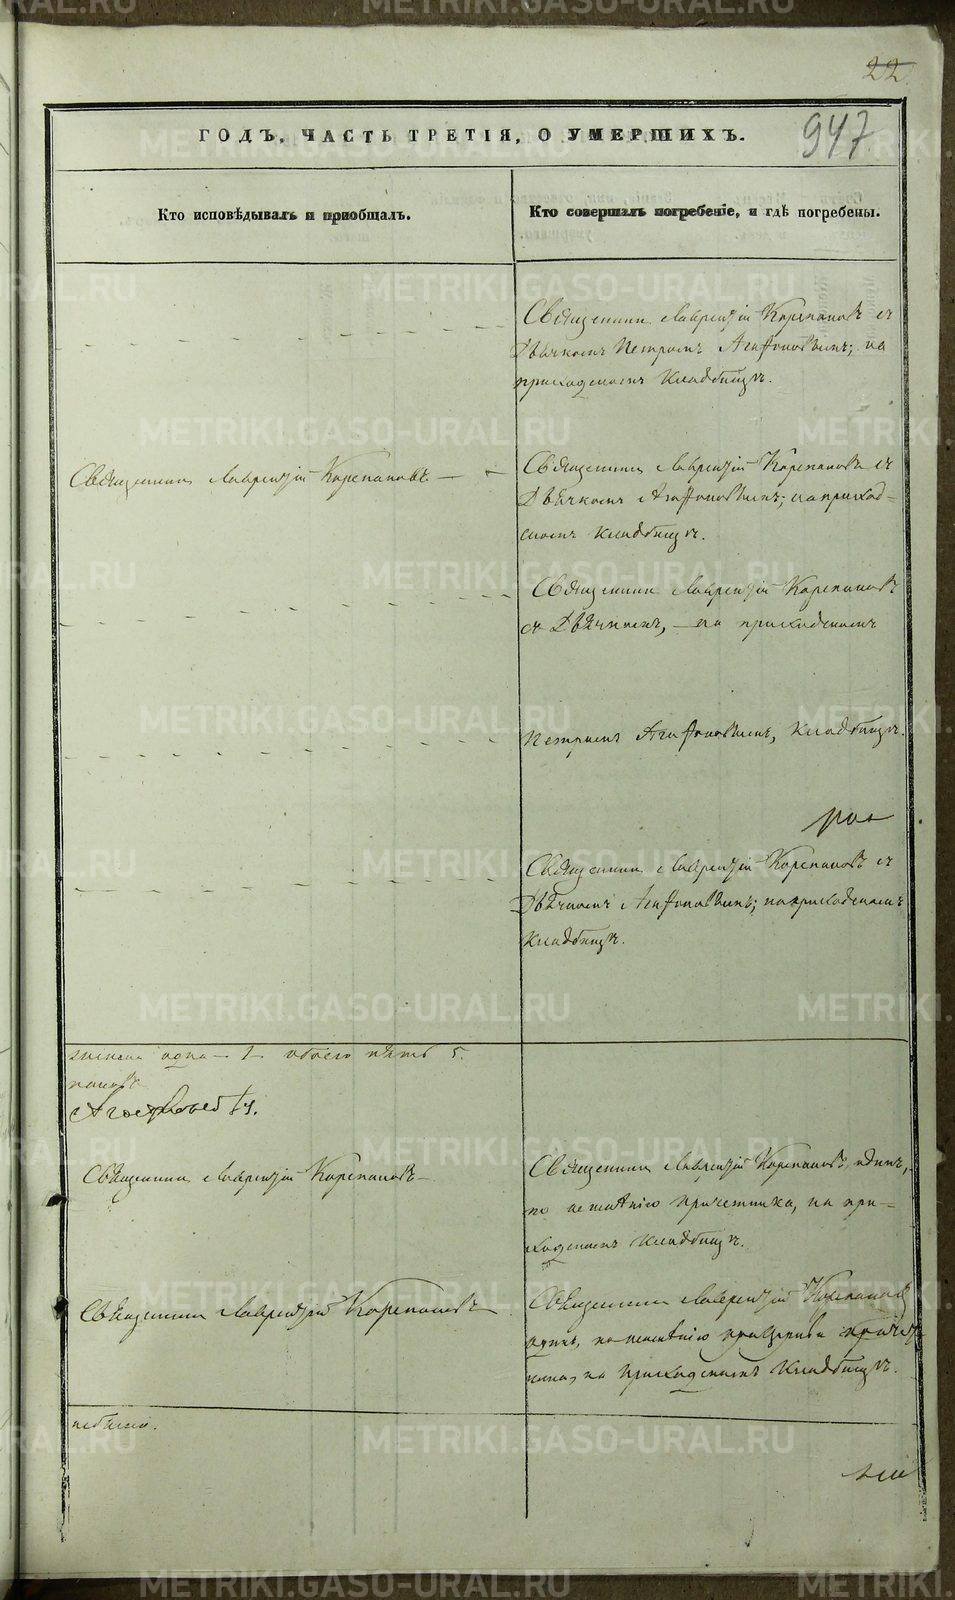 22
947
ГОДЪ, ЧАСТЬ ТРЕТІЯ, О УМЕРШИХЪ.
Кто исповѣдывалъ и пріобщалъ.
Кто совершалъ погребеніе, и гдѣ погребены.
Священникъ Лаврентій Корепановъ съ
Дьячкомъ Петромъ Агафоновымъ; на
приходскомъ кладбищѣ.
Священникъ Лаврентій Корепановъ
Священникъ Лаврентій Корепановъ съ
Дьячкомъ Агафоновымъ; на приход-
скомъ кладбищѣ.
Священникъ Лаврентій Корепановъ
съ Дьячкомъ, на приходскомъ
Петромъ Агафоновымъ, кладбищѣ.
Священникъ Лаврентій Корепановъ съ
Дьячкомъ Агафоновымъ; на приходскомъ
кладбищѣ.
женска одна 1 обоего пять 5.
пановъ
Агафоновъ
Священникъ Лаврентій Корепановъ
Священникъ Лаврентій Корепановъ, одинъ,
по неимѣнію причетника, на при-
ходскомъ кладбищѣ.
Священникъ Лаврентій Корепановъ
Священникъ Лаврентій Корепановъ
одинъ, по неимѣнію при церкви причет
ника, на приходскомъ кладбищѣ.
METRIKI.GASO-URAL.RU